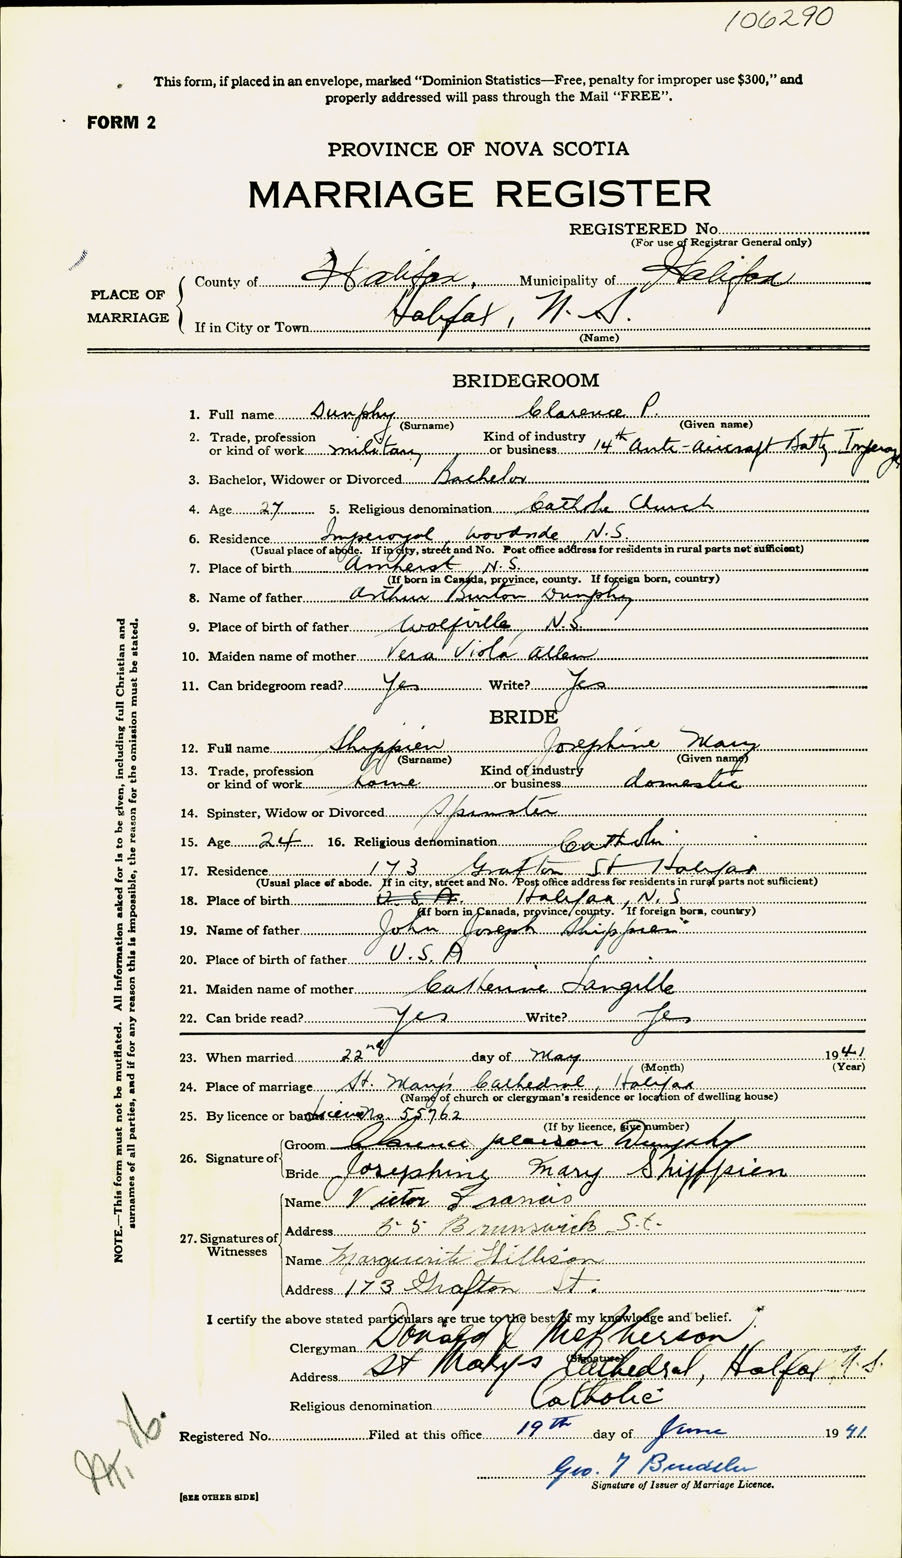 106290
This form, if placed in an envelope, marked "Dominion Statistics—Free, penalty for improper use $300," and
properly addressed will pass through the Mail "FREE".
FORM 2
PROVINCE OF NOVA SCOTIA
MARRIAGE REGISTER
REGISTERED No.
(For use of Registrar General only)
PLACE OF MARRIAGE
County of Halifax, Municipality of Halifax
If in City or Town Halifax, N.S.
(Name)
BRIDEGROOM
1. Full name Dunphy Clarence P.
(Surname) (Given name)
2. Trade, profession or kind of work military Kind of industry or business 14th Anti-aircraft Batty
3. Bachelor, Widower or Divorced Bachelor
4. Age 27 5. Religious denomination Catholic Church
6. Residence Imperoyal, Woodside, N.S.
(Usual place of abode. If in city, street and No. Post office address for residents in rural parts not sufficient)
7. Place of birth Amherst, N.S.
(If born in Canada, province, county. If foreign born, country)
8. Name of father Arthur Burton Dunphy
9. Place of birth of father Wolfville, N.S.
10. Maiden name of mother Vera Viola Allen
11. Can bridegroom read? Yes Write? Yes
BRIDE
12. Full name Shippien Josephine Mary
(Surname) (Given name)
13. Trade, profession or kind of work home Kind of industry or business domestic
14. Spinster, Widow or Divorced Spinster
15. Age 24 16. Religious denomination Catholic
17. Residence 173 Grafton St Halifax
(Usual place of abode. If in city, street and No. Post office address for residents in rural parts not sufficient)
18. Place of birth U.S.A. Halifax, N.S
(If born in Canada, province, county. If foreign born, country)
19. Name of father John Joseph Shippien
20. Place of birth of father U.S.A
21. Maiden name of mother Catherine Langille
22. Can bride read? Yes Write? Yes
23. When married 22nd day of May 1941
(Month) (Year)
24. Place of marriage St. Mary's Cathedral, Halifax
(Name of church or clergyman's residence or location of dwelling house)
25. By licence or banns Licence No. 55762
(If by licence, give number)
26. Signature of
Groom Clarence pearson Dunphy
Bride Josephine Mary Shippien
27. Signatures of Witnesses
Name Victor Francis
Address 55 Brunswick St.
Name Marguerite Hillison
Address 173 Grafton St.
I certify the above stated particulars are true to the best of my knowledge and belief.
Clergyman Donald J McPherson
(Signature)
Address St Mary's Cathedral, Halifax N.S.
Religious denomination Catholic
Registered No. Filed at this office 19th day of June 1941
Geo. T
Signature of Issuer of Marriage Licence.
[SEE OTHER SIDE]
NOTE.—This form must not be mutilated. All information asked for is to be given, including full Christian and
surnames of all parties, and if for any reason this is impossible, the reason for the omission must be stated.